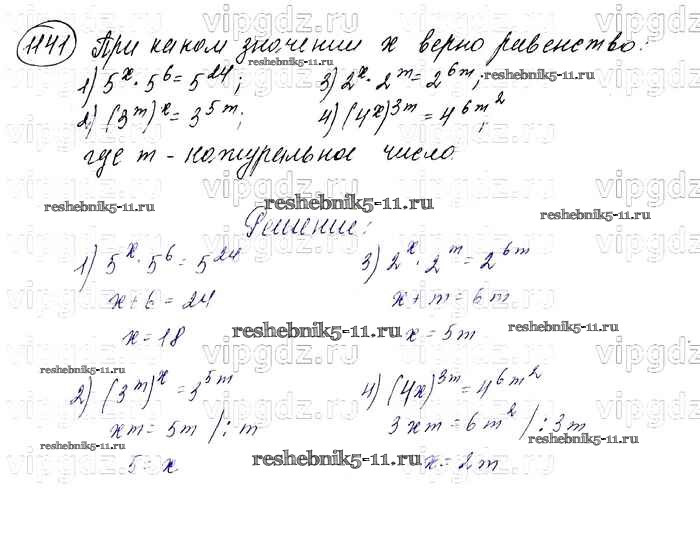 1141 При каком значении x верно равенство:
1) 5^x · 5^6 = 5^24; 3) 2^x · 2^m = 2^6m;
2) (3^m)^x = 3^5m; 4) (4x)^3m = 4^6m^2;
где m - натуральное число.
Решение:
1) 5^x · 5^6 = 5^24
x + 6 = 24
x = 18
3) 2^x · 2^m = 2^6m
x + m = 6m
x = 5m
2) (3^m)^x = 3^5m
xm = 5m /: m
5 = x
4) (4x)^3m = 4^6m^2
3xm = 6m^2 /: 3m
x = 2m
vipgdz.ru
reshebnik5-11.ru